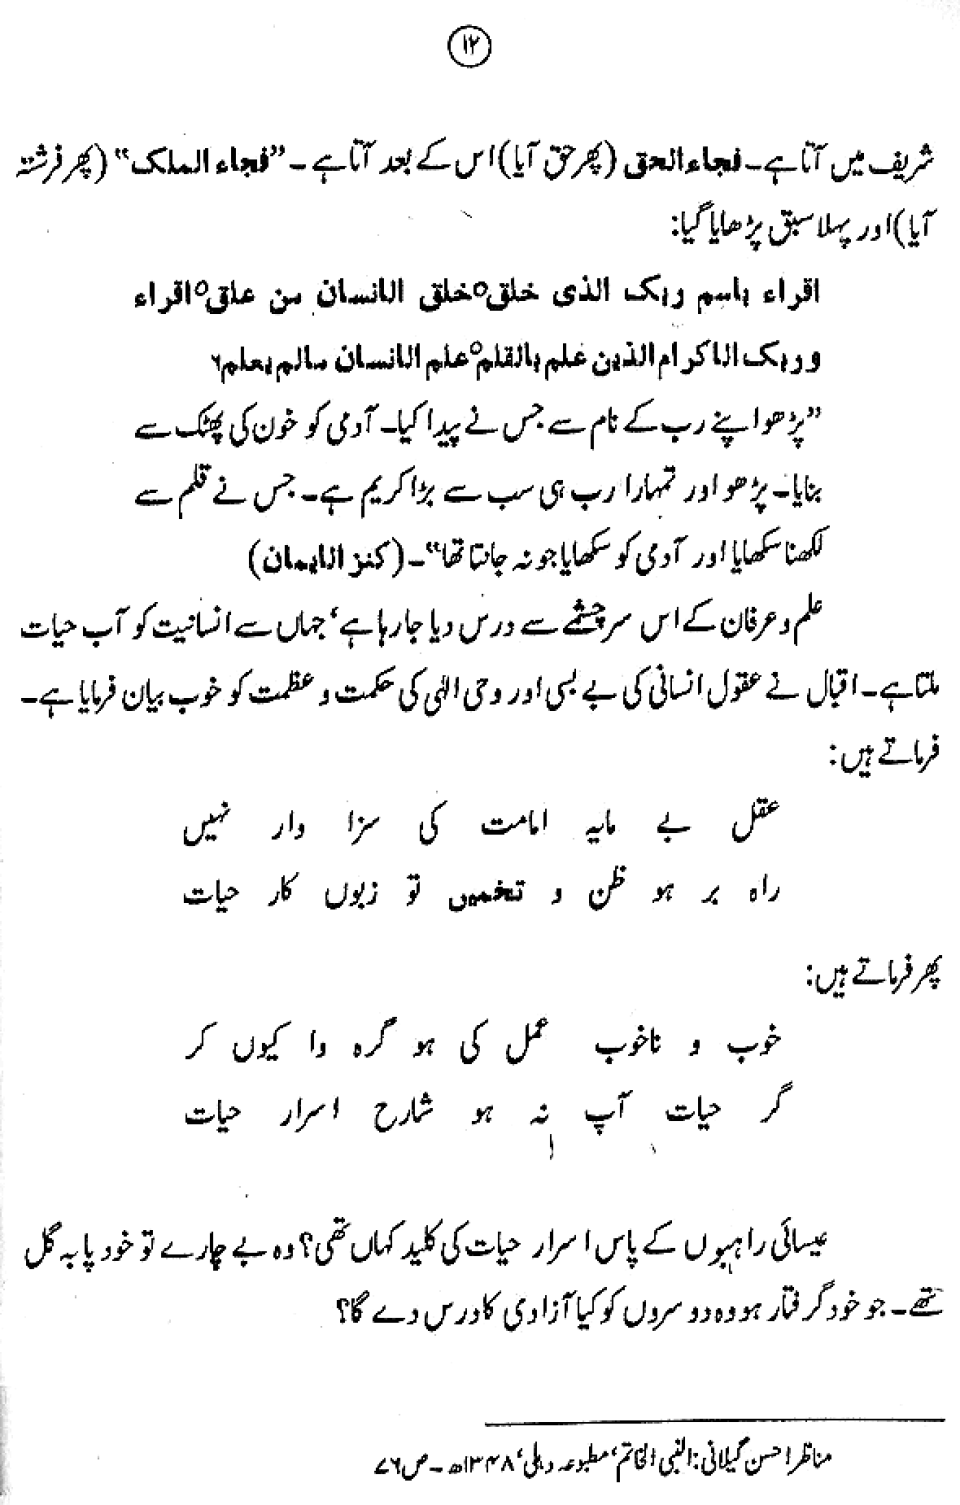 ۱۲
شریف میں آتا ہے۔ فجاء الحق (پھر حق آیا) اس کے بعد آتا ہے۔ "فجاء الملک" (پھر فرشتہ
آیا) اور پہلا سبق پڑھایا گیا:
اقراء باسم ربک الذی خلق○خلق الانسان من علق○اقراء
و ربک الاکرام الذین علم بالقلم○علم الانسان مالم یعلم۶
"پڑھو اپنے رب کے نام سے جس نے پیدا کیا۔ آدمی کو خون کی پھٹک سے
بنایا۔ پڑھو اور تمہارا رب ہی سب سے بڑا کریم ہے۔ جس نے قلم سے
لکھنا سکھایا اور آدمی کو سکھایا جو نہ جانتا تھا"۔ (کنز الایمان)
علم و عرفان کے اس سرچشمے سے درس دیا جا رہا ہے، جہاں سے انسانیت کو آب حیات
ملتا ہے۔ اقبال نے عقول انسانی کی بے بسی اور وحی الٰہی کی حکمت و عظمت کو خوب بیان فرمایا ہے۔
فرماتے ہیں:
عقل بے مایہ امامت کی سزا وار نہیں
راہ بر ہو ظن و تخمیں تو زبوں کار حیات
پھر فرماتے ہیں:
خوب و ناخوب عمل کی ہو گرہ وا کیوں کر
گر حیات آپ نہ ہو شارح اسرار حیات
عیسائی راہبوں کے پاس اسرار حیات کی کلید کہاں تھی؟ وہ بے چارے تو خود پا بہ گل
تھے۔ جو خود گرفتار ہو وہ دوسروں کو کیا آزادی کا درس دے گا؟
مناظر احسن گیلانی: النبی الخاتم، مطبوعہ دہلی، ۱۳۴۸ھ۔ ص ۷۶